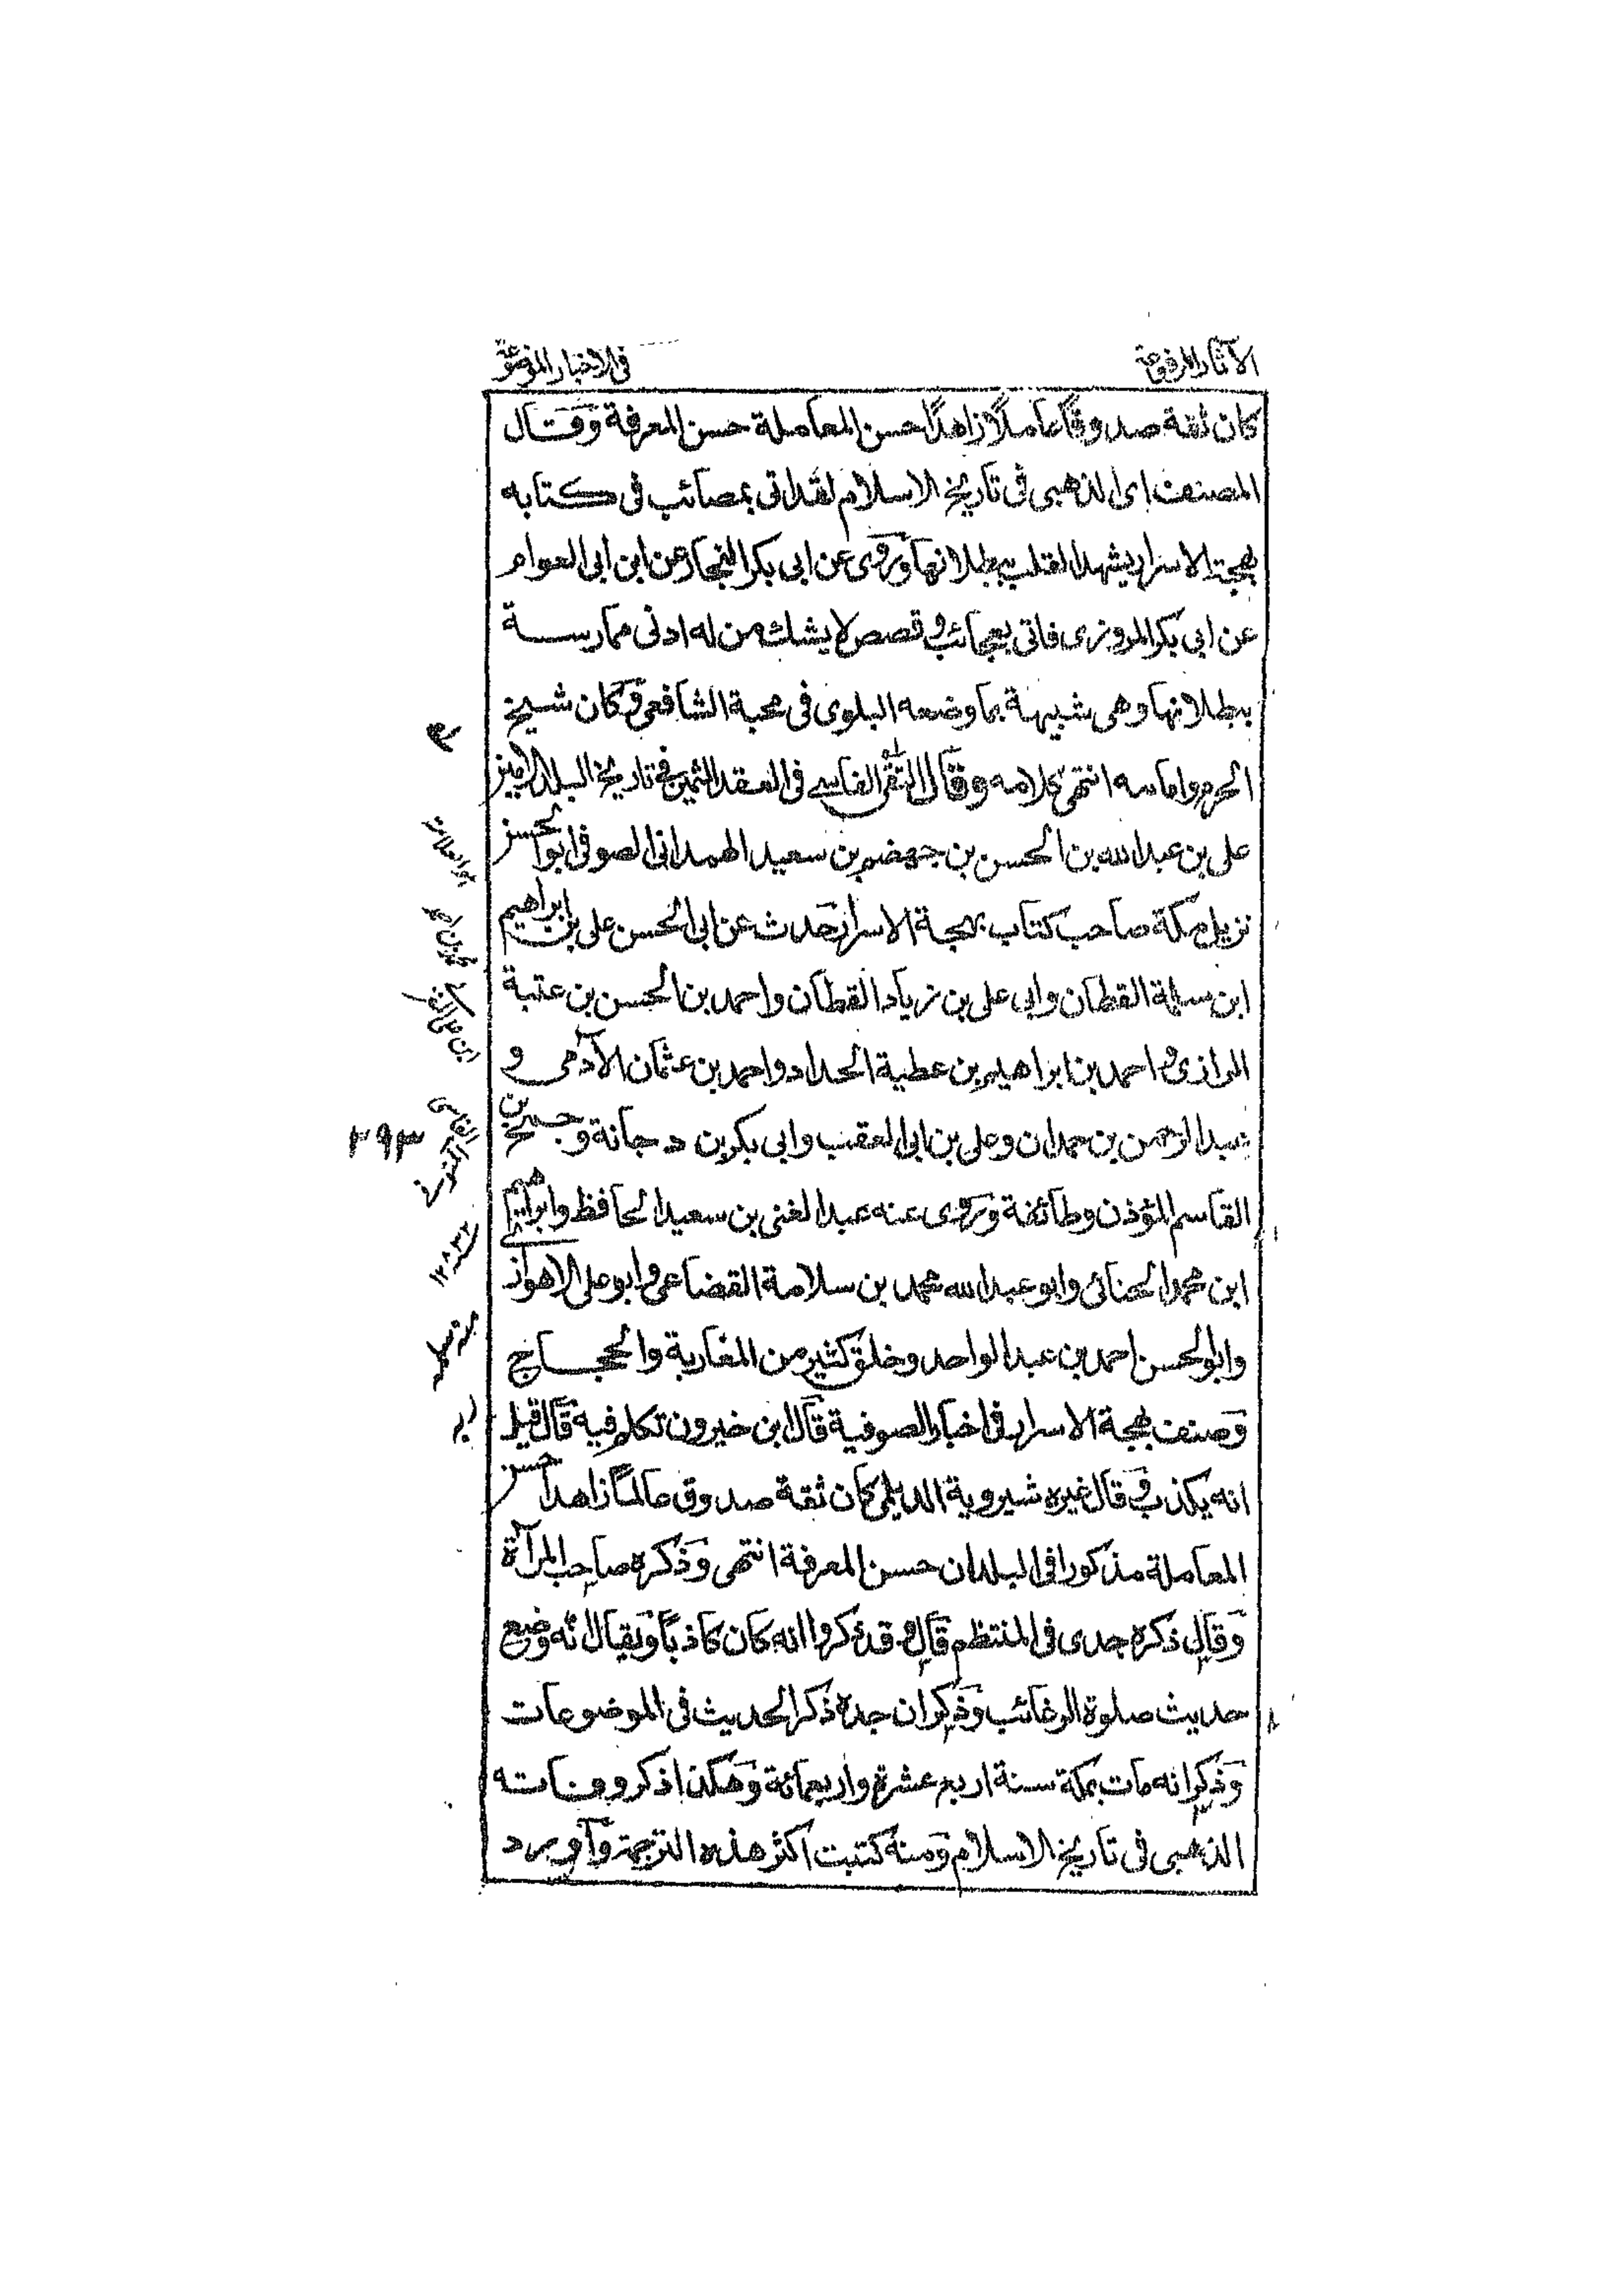 الآثار المرفوعة
فى الاخبار الموضوعة
كان ثقة صدوقًا عاملًا زاهدًا حسن المعاملة حسن المعرفة وقال
المصنف اى الذهبى فى تاريخ الاسلام لقد اتى بمصائب فى كتابه
بهجة الاسرار يشهد القلب ببطلانها وروى عن ابى بكر النجاد عن ابن ابى العوام
عن ابى بكر المروزى فاتى بعجائب وقصص لا يشك من له ادنى ممارسة
ببطلانها وهى شبيهة بما وضعه البلوى فى محبة الشافعى وكان شيخ
الحرم وامامه انتهى كلامه وقال التقى الفاسى فى العقد الثمين فى تاريخ البلد الامين
على بن عبد الله بن الحسن بن جهضم بن سعيد الهمدانى الصوفى ابو الحسن
نزيل مكة صاحب كتاب بهجة الاسرار حدث عن ابى الحسن على بن ابراهيم
ابن سلمة القطان وابى على بن زياد القطان واحمد بن الحسن بن عتبة
الرازى واحمد بن ابراهيم بن عطية الحداد واحمد بن عثمان الآدمى و
عبد الرحمن بن حمدان وعلى بن ابى العقب وابى بكر بن دجانة وجمح بن
القاسم المؤذن وطائفة وروى عنه عبد الغنى بن سعيد الحافظ وابراهيم
ابن محمد الحنائى وابو عبد الله محمد بن سلامة القضاعى وابو على الاهوازى
وابو الحسن احمد بن عبد الواحد وخلق كثير من المغاربة والحجاج
وصنف بهجة الاسرار فى اخبار الصوفية قال ابن خيرون تكلم فيه قال قيل
انه يكذب وقال غيره شيروية الديلمى كان ثقة صدوق عالمًا زاهدا حسن
المعاملة مذكورا فى البلدان حسن المعرفة انتهى وذكره صاحب المرآة
وقال ذكره جدى فى المنتظم قال وقد ذكروا انه كان كاذبًا ويقال انه وضع
حديث صلوة الرغائب وذكر ان جده ذكر الحديث فى الموضوعات
وذكر انه مات بمكة سنة اربع عشرة واربعمائة وهكذا ذكر وفاته
الذهبى فى تاريخ الاسلام ومنه كتبت اكثر هذه الترجمة وآويرد
ابن على
الفاسى
المتوفى
٨٣٢
منه سلمه
ربه
٢٩٣